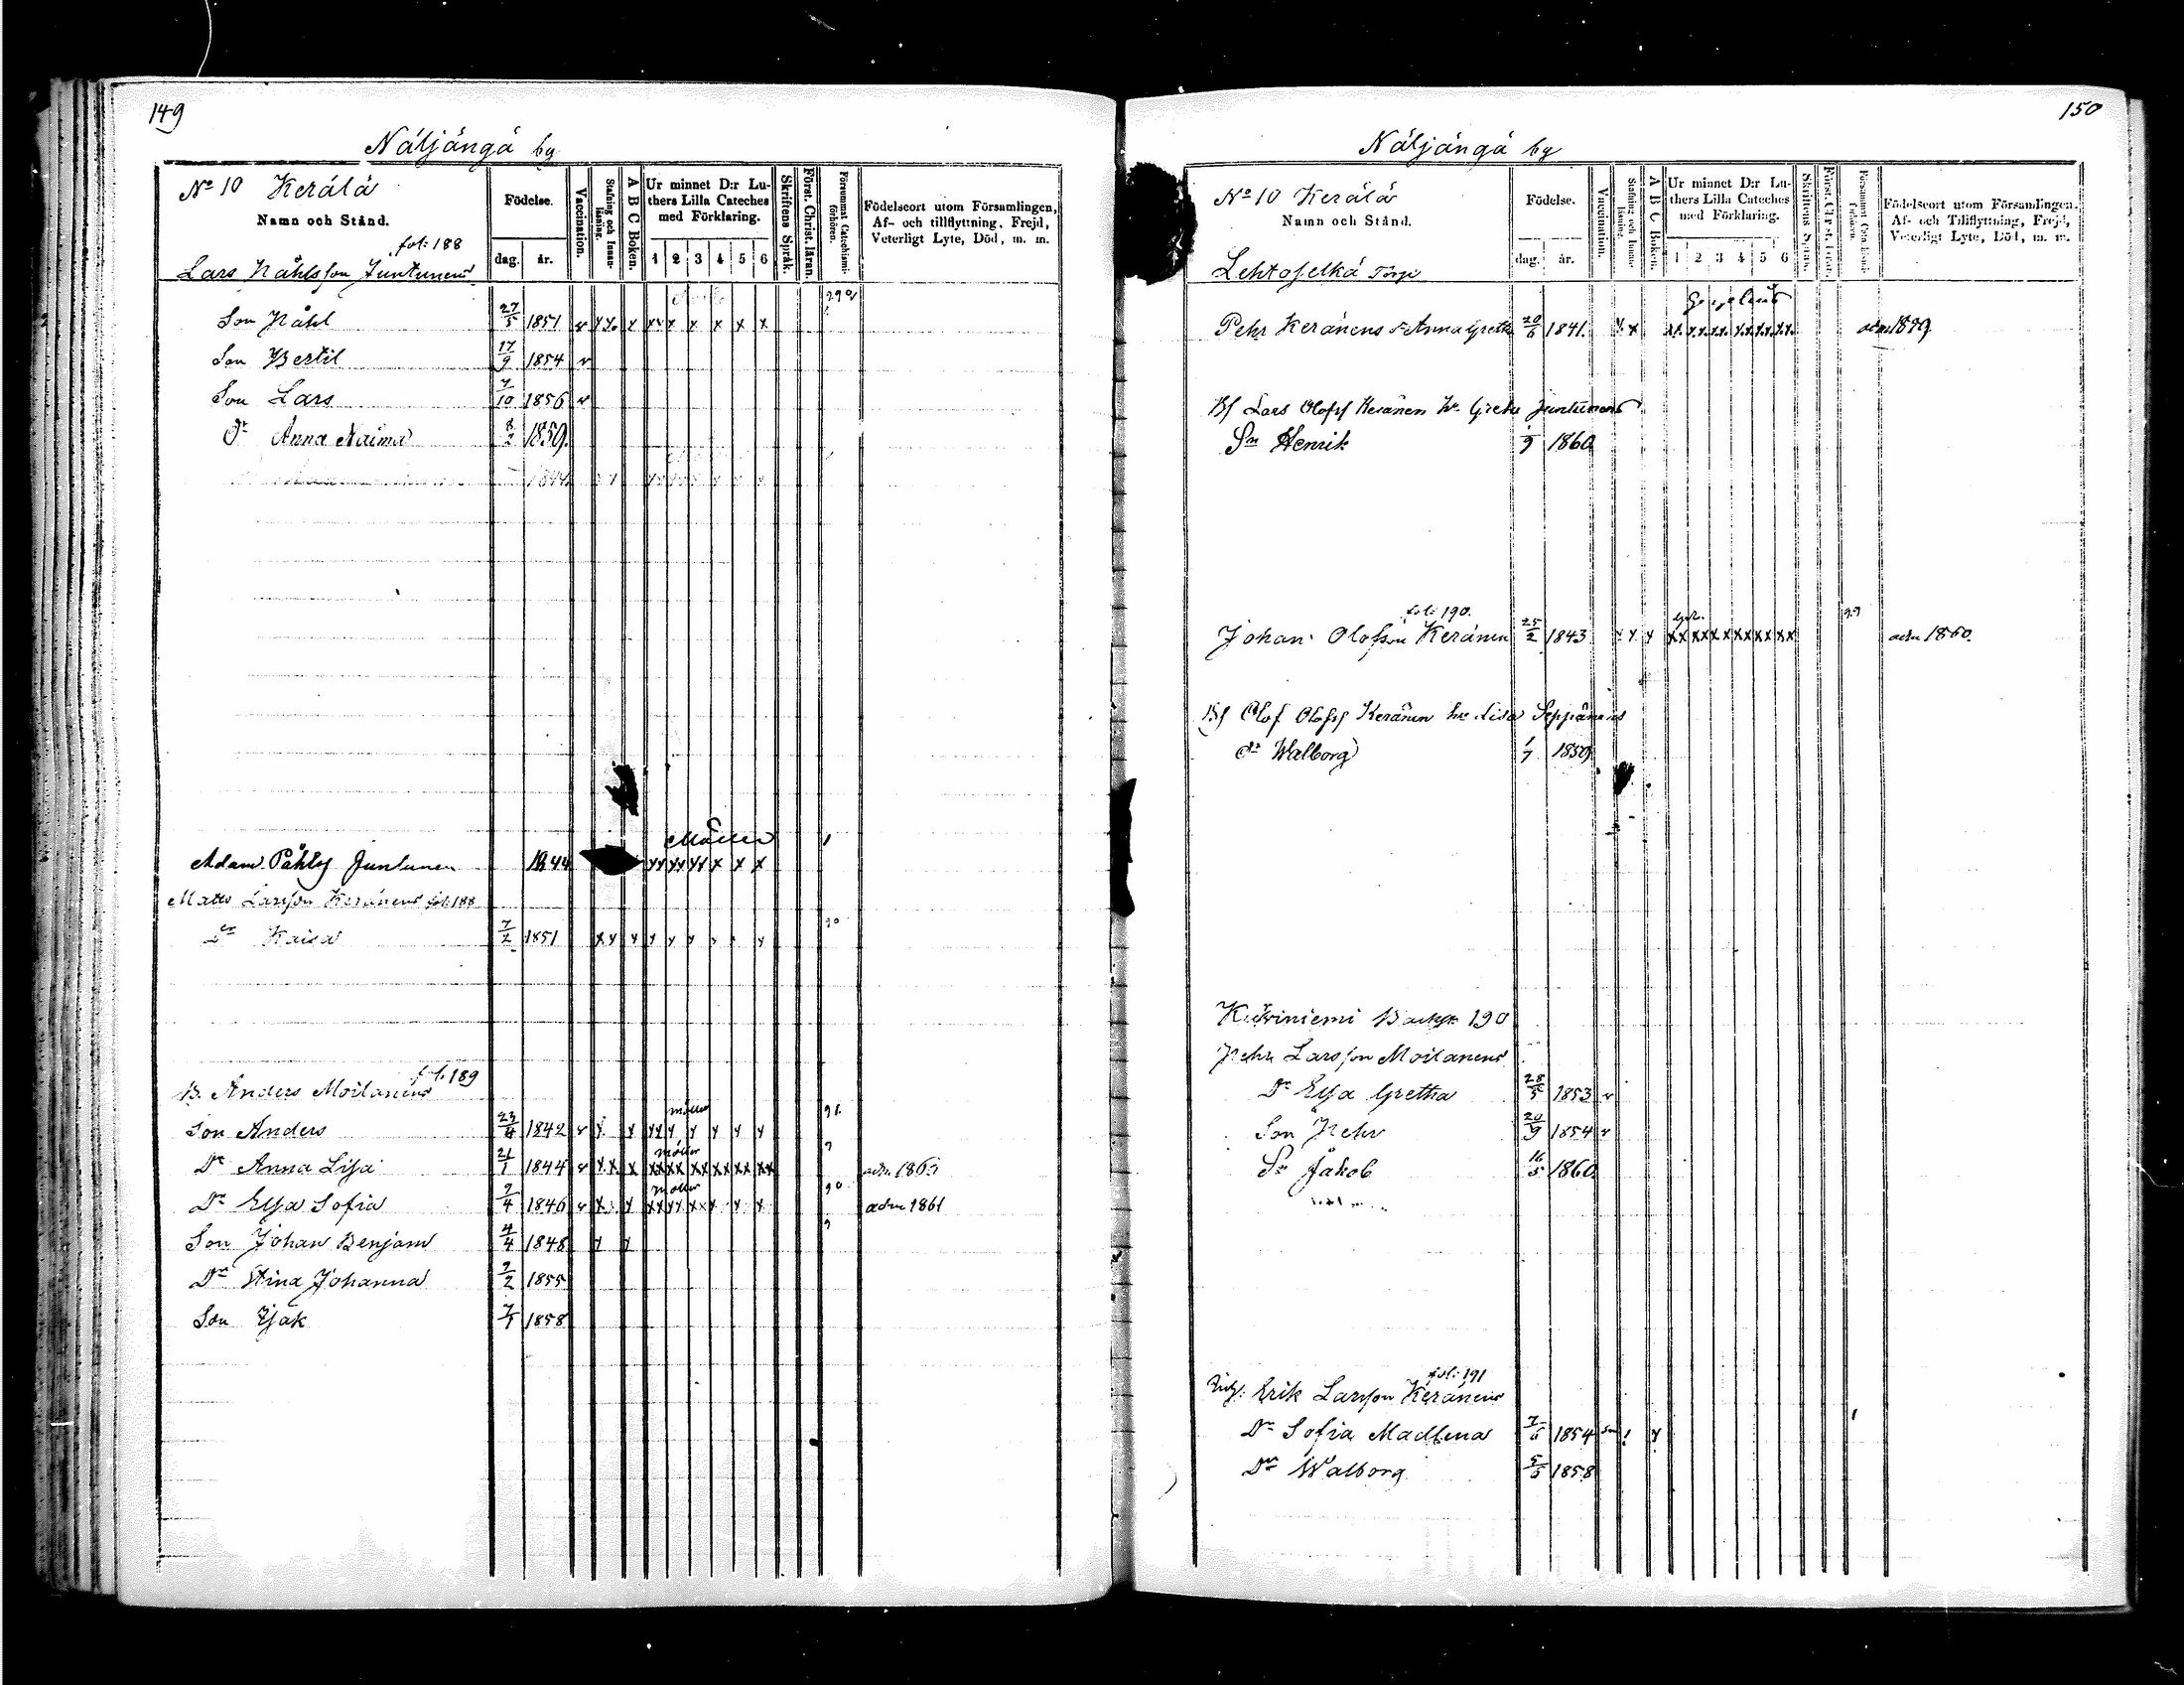 149
Näljängä by
No 10 Kerälä
Namn och Stånd.
Födelse.
dag. år.
Vaccination.
Stafning och Innanläsning.
A B C Boken.
Ur minnet D:r Luthers Lilla Cateches med Förklaring.
1 2 3 4 5 6
Skriftens Språk.
Först. Christ. läran.
Försummat Catechismiförhören.
Födelseort utom Församlingen, Af- och tillflyttning, Frejd, Veterligt Lyte, Död, m. m.
fol: 188
Lars Påhlsson Juntunens
Son Påhl 27/5 1851 v x x x x x x x x
Son Bertil 17/9 1854 v
Son Lars 7/10 1856 v
Dr Anna Naima 8/2 1859.
1844
Möller
Adam Påhlsf Juntunen 1844 xx xx xx x x x
Matts Larsson Keränens fol: 188
Dr Kaisa 7/2 1851 x x x x x x x
fol: 189
B. Anders Moilanens
Son Anders 23/4 1842 v x x xx x x x x x
möller
Dr Anna Lisa 21/1 1844 v x x x xx xx xx xx xx xx
möller
Dr Elsa Sofia 9/4 1846 v x x xx xx xx x x x adm 1861
möller
Son Johan Benjam 4/4 1848 x x
Dr Stina Johanna 9/2 1855
Son Isak 1858
150
Näljängä by
No 10 Kerälä
Namn och Stånd.
Födelse.
dag. år.
Vaccination.
Stafning och Innanläsning.
A B C Boken.
Ur minnet D:r Luthers Lilla Cateches med Förklaring.
1 2 3 4 5 6
Skriftens Språk.
Först. Christ. läran.
Försummat Catechismiförhören.
Födelseort utom Församlingen, Af- och Tillflyttning, Frejd, Veterligt Lyte, Död, m. m.
Lehtoselkä Torp
Pehr Keränens Anna Greta 20/6 1841. x x xx xx xx xx xx xx adm 1859
Bf Lars Olofsf Keränen hu Greta Juntunens
Sn Henrik 1860
fol: 190.
Johan Olofsson Keränen 25/2 1843 x x x xx xx xx xx xx xx adm 1860.
Bf Olof Olofsf Keränen hu Lisa Seppänens
dr Walborg 1/7 1859
190
Pehr Larsson Moilanens
Dr Elsa Gretha 28/5 1853 v
Son Pehr 20/9 1854 v
Sn Jakob 16/5 1860
fol: 191
Erik Larsson Keränens
Dr Sofia Madlena 7/6 1854
Dr Walborg 5/5 1858